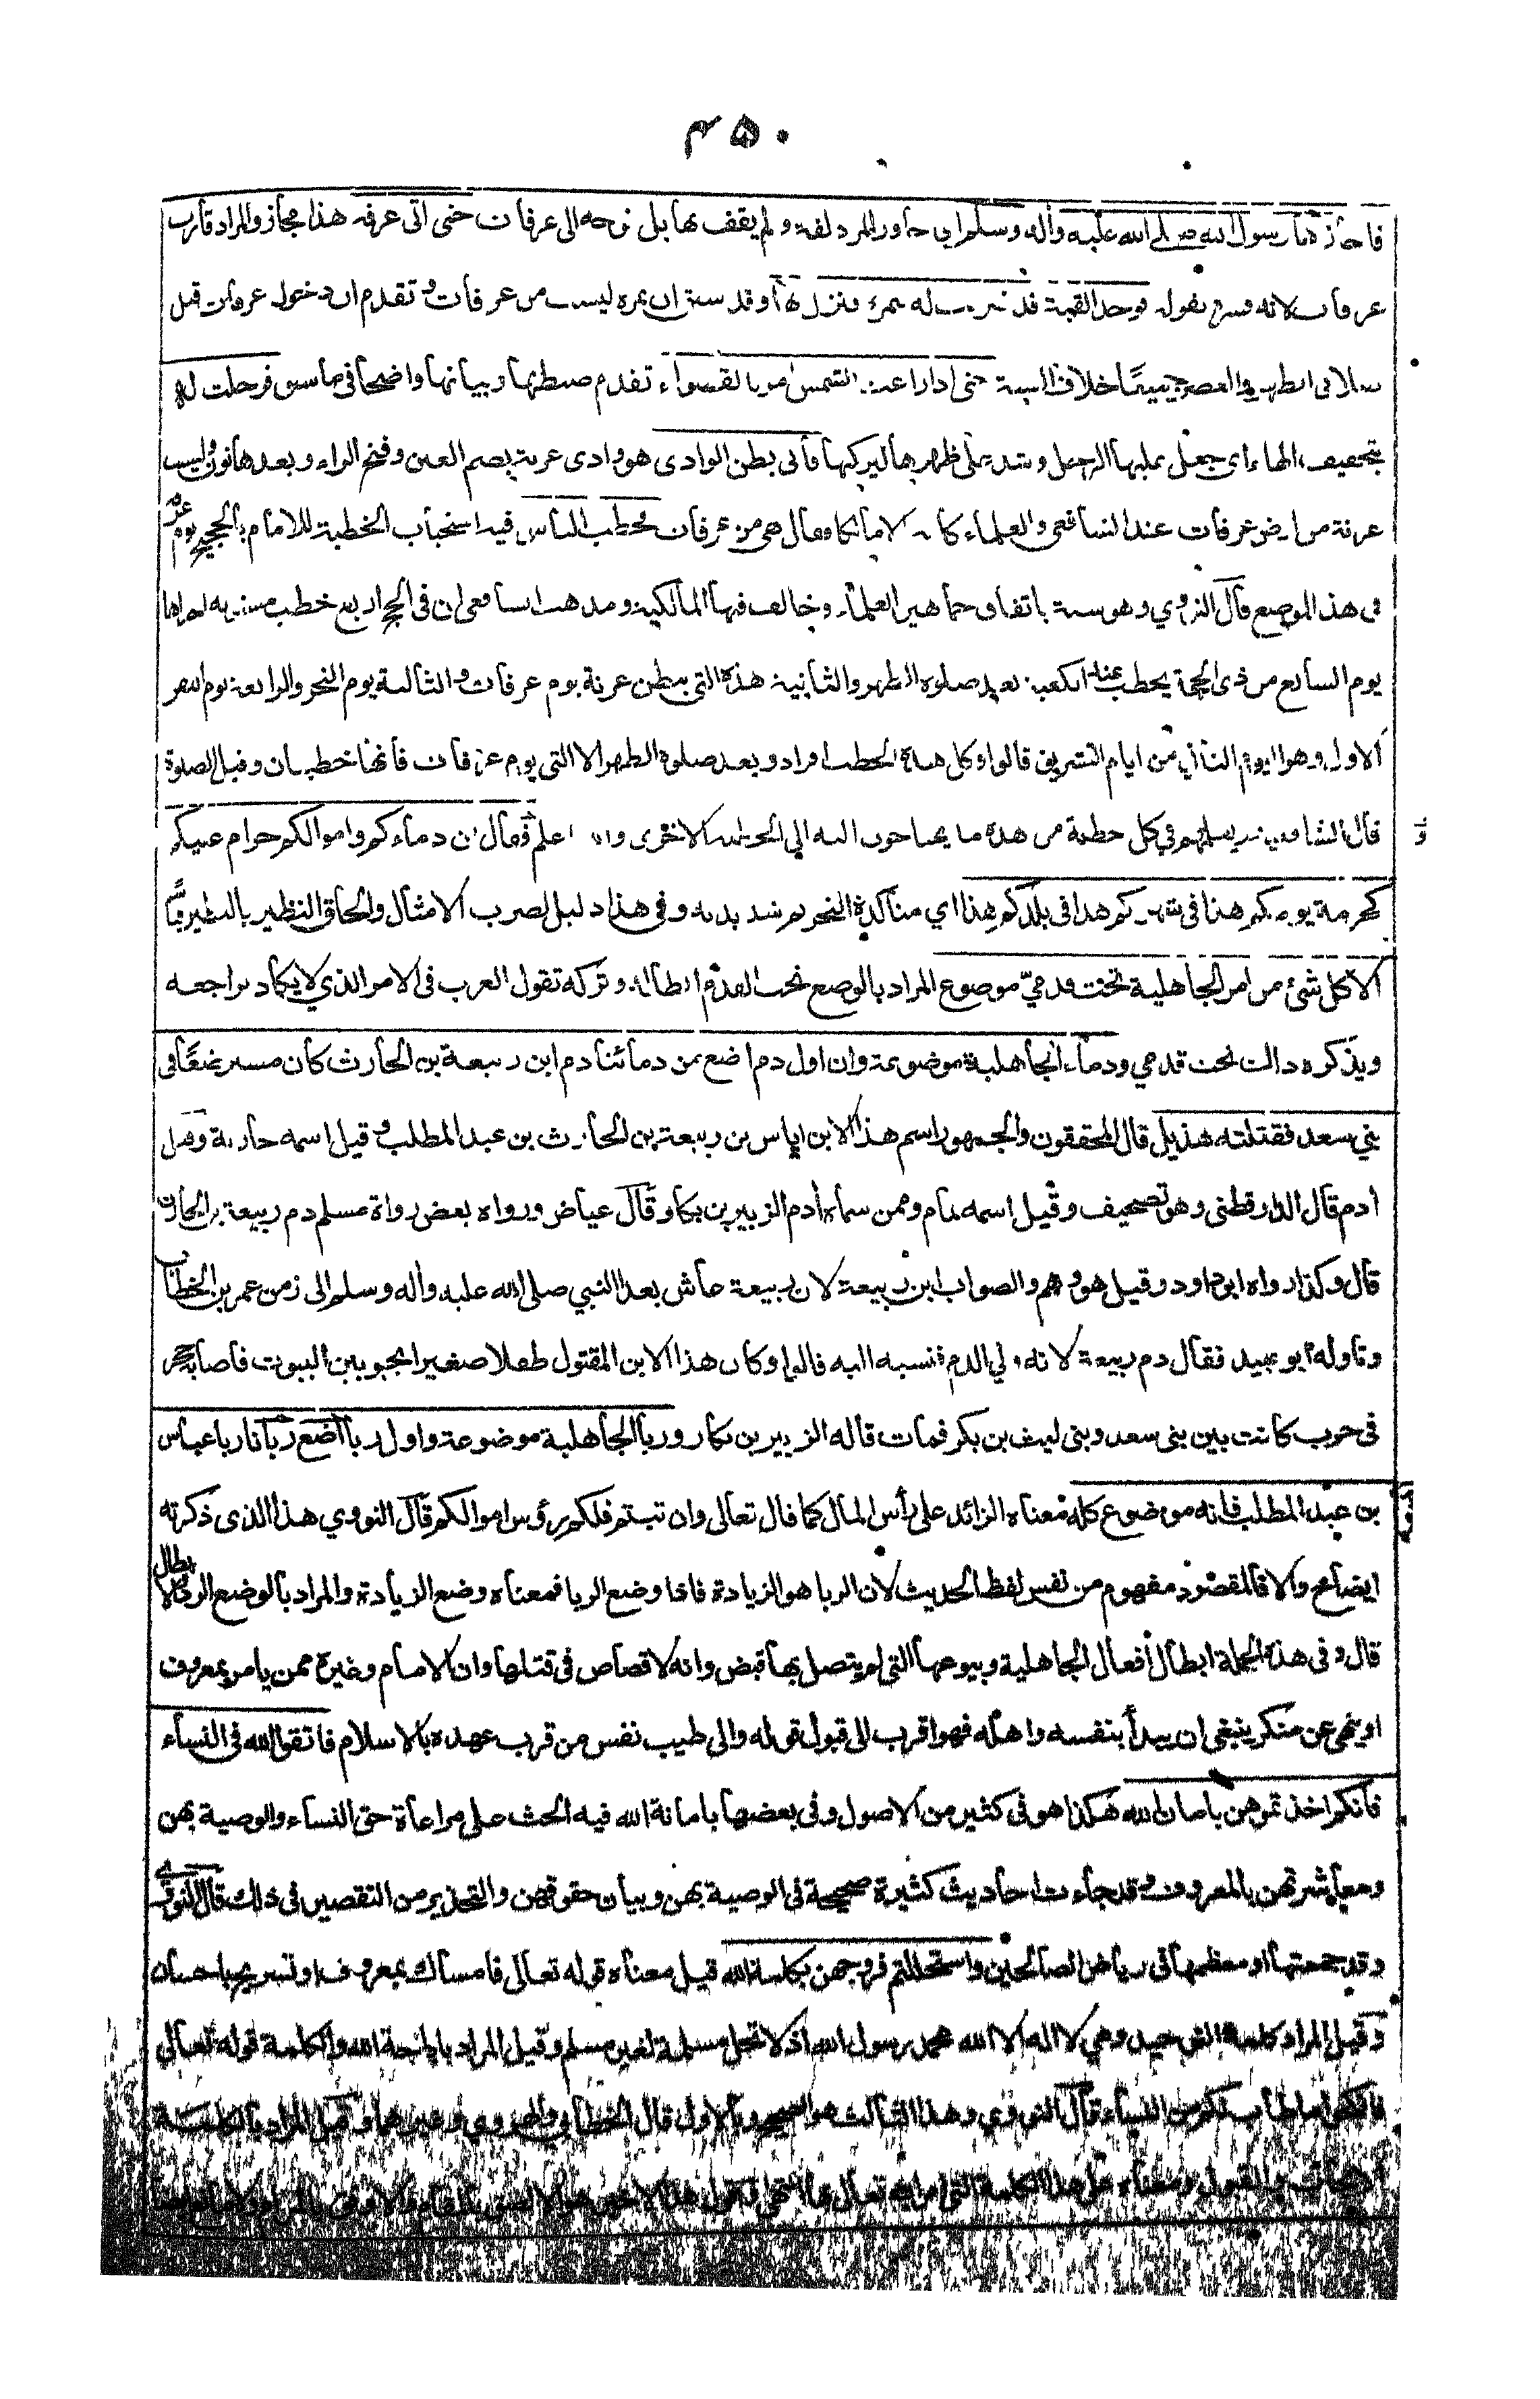 ٤٥٠
فاجاز رسول الله صلى الله عليه وآله وسلم اى جاوز المزدلفة ولم يقف بها بل توجه الى عرفات حتى اتى عرفة هذا مجاز والمراد قارب
عرفات لانه فسره بقوله فوجد القبة قد ضربت له بنمرة فنزل بها وقد سبق ان نمرة ليست من عرفات وتقدم ان دخول عرفات قبل
صلاتى الظهر والعصر جميعًا خلاف السنة حتى اذا زاغت الشمس امر بالقصواء تقدم ضبطها وبيانها واضحا فى ما سبق فرحلت له
بتخفيف الحاء اى جعل عليها الرحل وشد على ظهرها ليركبها فأتى بطن الوادى هو وادى عرنة بضم العين وفتح الراء وبعدها نون وليست
عرنة من ارض عرفات عند الشافعى والعلماء كافة الا مالكا وقال هى من عرفات فخطب الناس فيه استحباب الخطبة للامام بالحجيج يوم عرفة
فى هذا الموضع قال النووي وهو سنة باتفاق جماهير العلماء وخالف فيها المالكية ومذهب الشافعى ان فى الحج اربع خطب مسنونة احداها
يوم السابع من ذى الحجة يخطب عند الكعبة بعد صلوة الظهر والثانية هذه التى ببطن عرنة يوم عرفات والثالثة يوم النحر والرابعة يوم النفر
الاول وهو اليوم الثانى من ايام التشريق قالوا وكل هذه الخطب افراد وبعد صلوة الظهر الا التى يوم عرفات فانها خطبتان وقبل الصلوة
قال الشافعى ويعلمهم فى كل خطبة من هذه ما يحتاجون اليه الى الخطبة الاخرى والله اعلم وقال ان دماءكم واموالكم حرام عليكم
كحرمة يومكم هذا فى شهركم هذا فى بلدكم هذا اي متأكدة التحريم شديدته وفى هذا دليل لضرب الامثال والحاق النظير بالنظير قياسًا
الا كل شئ من امر الجاهلية تحت قدميّ موضوع المراد بالوضع تحت القدم ابطاله وتركه تقول العرب فى الامر الذي لا يكاد يراجعه
ويذكره ذالك تحت قدمي ودماء الجاهلية موضوعة وان اول دم اضع من دمائنا دم ابن ربيعة بن الحارث كان مسترضعًا فى
بني سعد فقتلته هذيل قال المحققون والجمهور اسم هذا الابن اياس بن ربيعة بن الحارث بن عبد المطلب وقيل اسمه حارثة وقيل
ادم قال الدارقطنى وهو تصحيف وقيل اسمه تمام وممن سماه ادم الزبير بن بكار وقال عياض ورواه بعض رواة مسلم دم ربيعة بن الحارث
قال وكذا رواه ابو داود وقيل هو وهم والصواب ابن ربيعة لان ربيعة عاش بعد النبي صلى الله عليه وآله وسلم الى زمن عمر بن الخطاب
وتاوله ابو عبيد فقال دم ربيعة لانه ولي الدم فنسبه اليه قالوا وكان هذا الابن المقتول طفلا صغيرا يحبو بين البيوت فاصابه حجر
فى حرب كانت بين بنى سعد وبنى ليث بن بكر فمات قاله الزبير بن بكار وربا الجاهلية موضوعة واول ربا اضع ربانا ربا عباس
بن عبد المطلب فانه موضوع كله معناه الزائد على رأس المال كما قال تعالى وان تبتم فلكم رؤس اموالكم قال النووي هذا الذى ذكرته
ايضاح والا فالمقصود مفهوم من نفس لفظ الحديث لان الربا هو الزيادة فاذا وضع الربا فمعناه وضع الزيادة والمراد بالوضع الرد والابطال
قال وفى هذه الجملة ابطال أفعال الجاهلية وبيوعها التى لم يتصل بها قبض وانه لا قصاص فى قتلها وان الامام وغيره ممن يامر بمعروف
او ينهى عن منكر ينبغى ان يبدأ بنفسه واهله فهو اقرب الى قبول قوله والى طيب نفس من قرب عهده بالاسلام فاتقوا الله فى النساء
فانكم اخذتموهن بامان الله هكذا هو فى كثير من الاصول وفى بعضها بامانة الله فيه الحث على مراعاة حق النساء والوصية بهن
ومعاشرتهن بالمعروف وقد جاءت احاديث كثيرة صحيحة فى الوصية بهن وبيان حقوقهن والتحذير من التقصير فى ذلك قال النووي
وقد جمعتها او معظمها فى رياض الصالحين واستحللتم فروجهن بكلمة الله قيل معناه قوله تعالى فامساك بمعروف او تسريح باحسان
وقيل المراد كلمة التوحيد وهي لا اله الا الله محمد رسول الله اذ لا تحل مسلمة لغير مسلم وقيل المراد باباحة الله والكلمة قوله تعالى
فانكحوا ما طاب لكم من النساء قال النووي وهذا الثالث هو الصحيح وبالاول قال الخطابي والهروي وغيرهما وقيل المراد بالكلمة
الايجاب والقبول ومعناه على هذا الكلمة التى امر الله تعالى بها انتهى